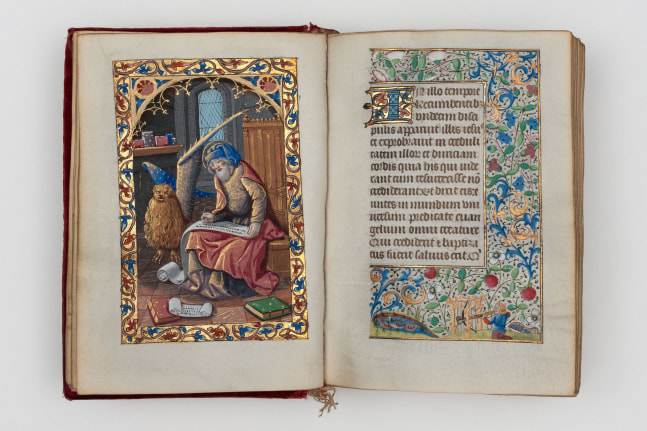 IN illo tempore
Recumentib⁹
undecim disci
pulis apparuit illis iesu
et exprobrauit in creduli
tatem illor et duriciam
cordis quia his qui uide
rant eum resurrexisse nō
crediderant Et dixit eis
euntes in mundum vni
uersum predicate euan
gelium omni creature
Qui crediderit et baptiza
tus fuerit saluus erit.